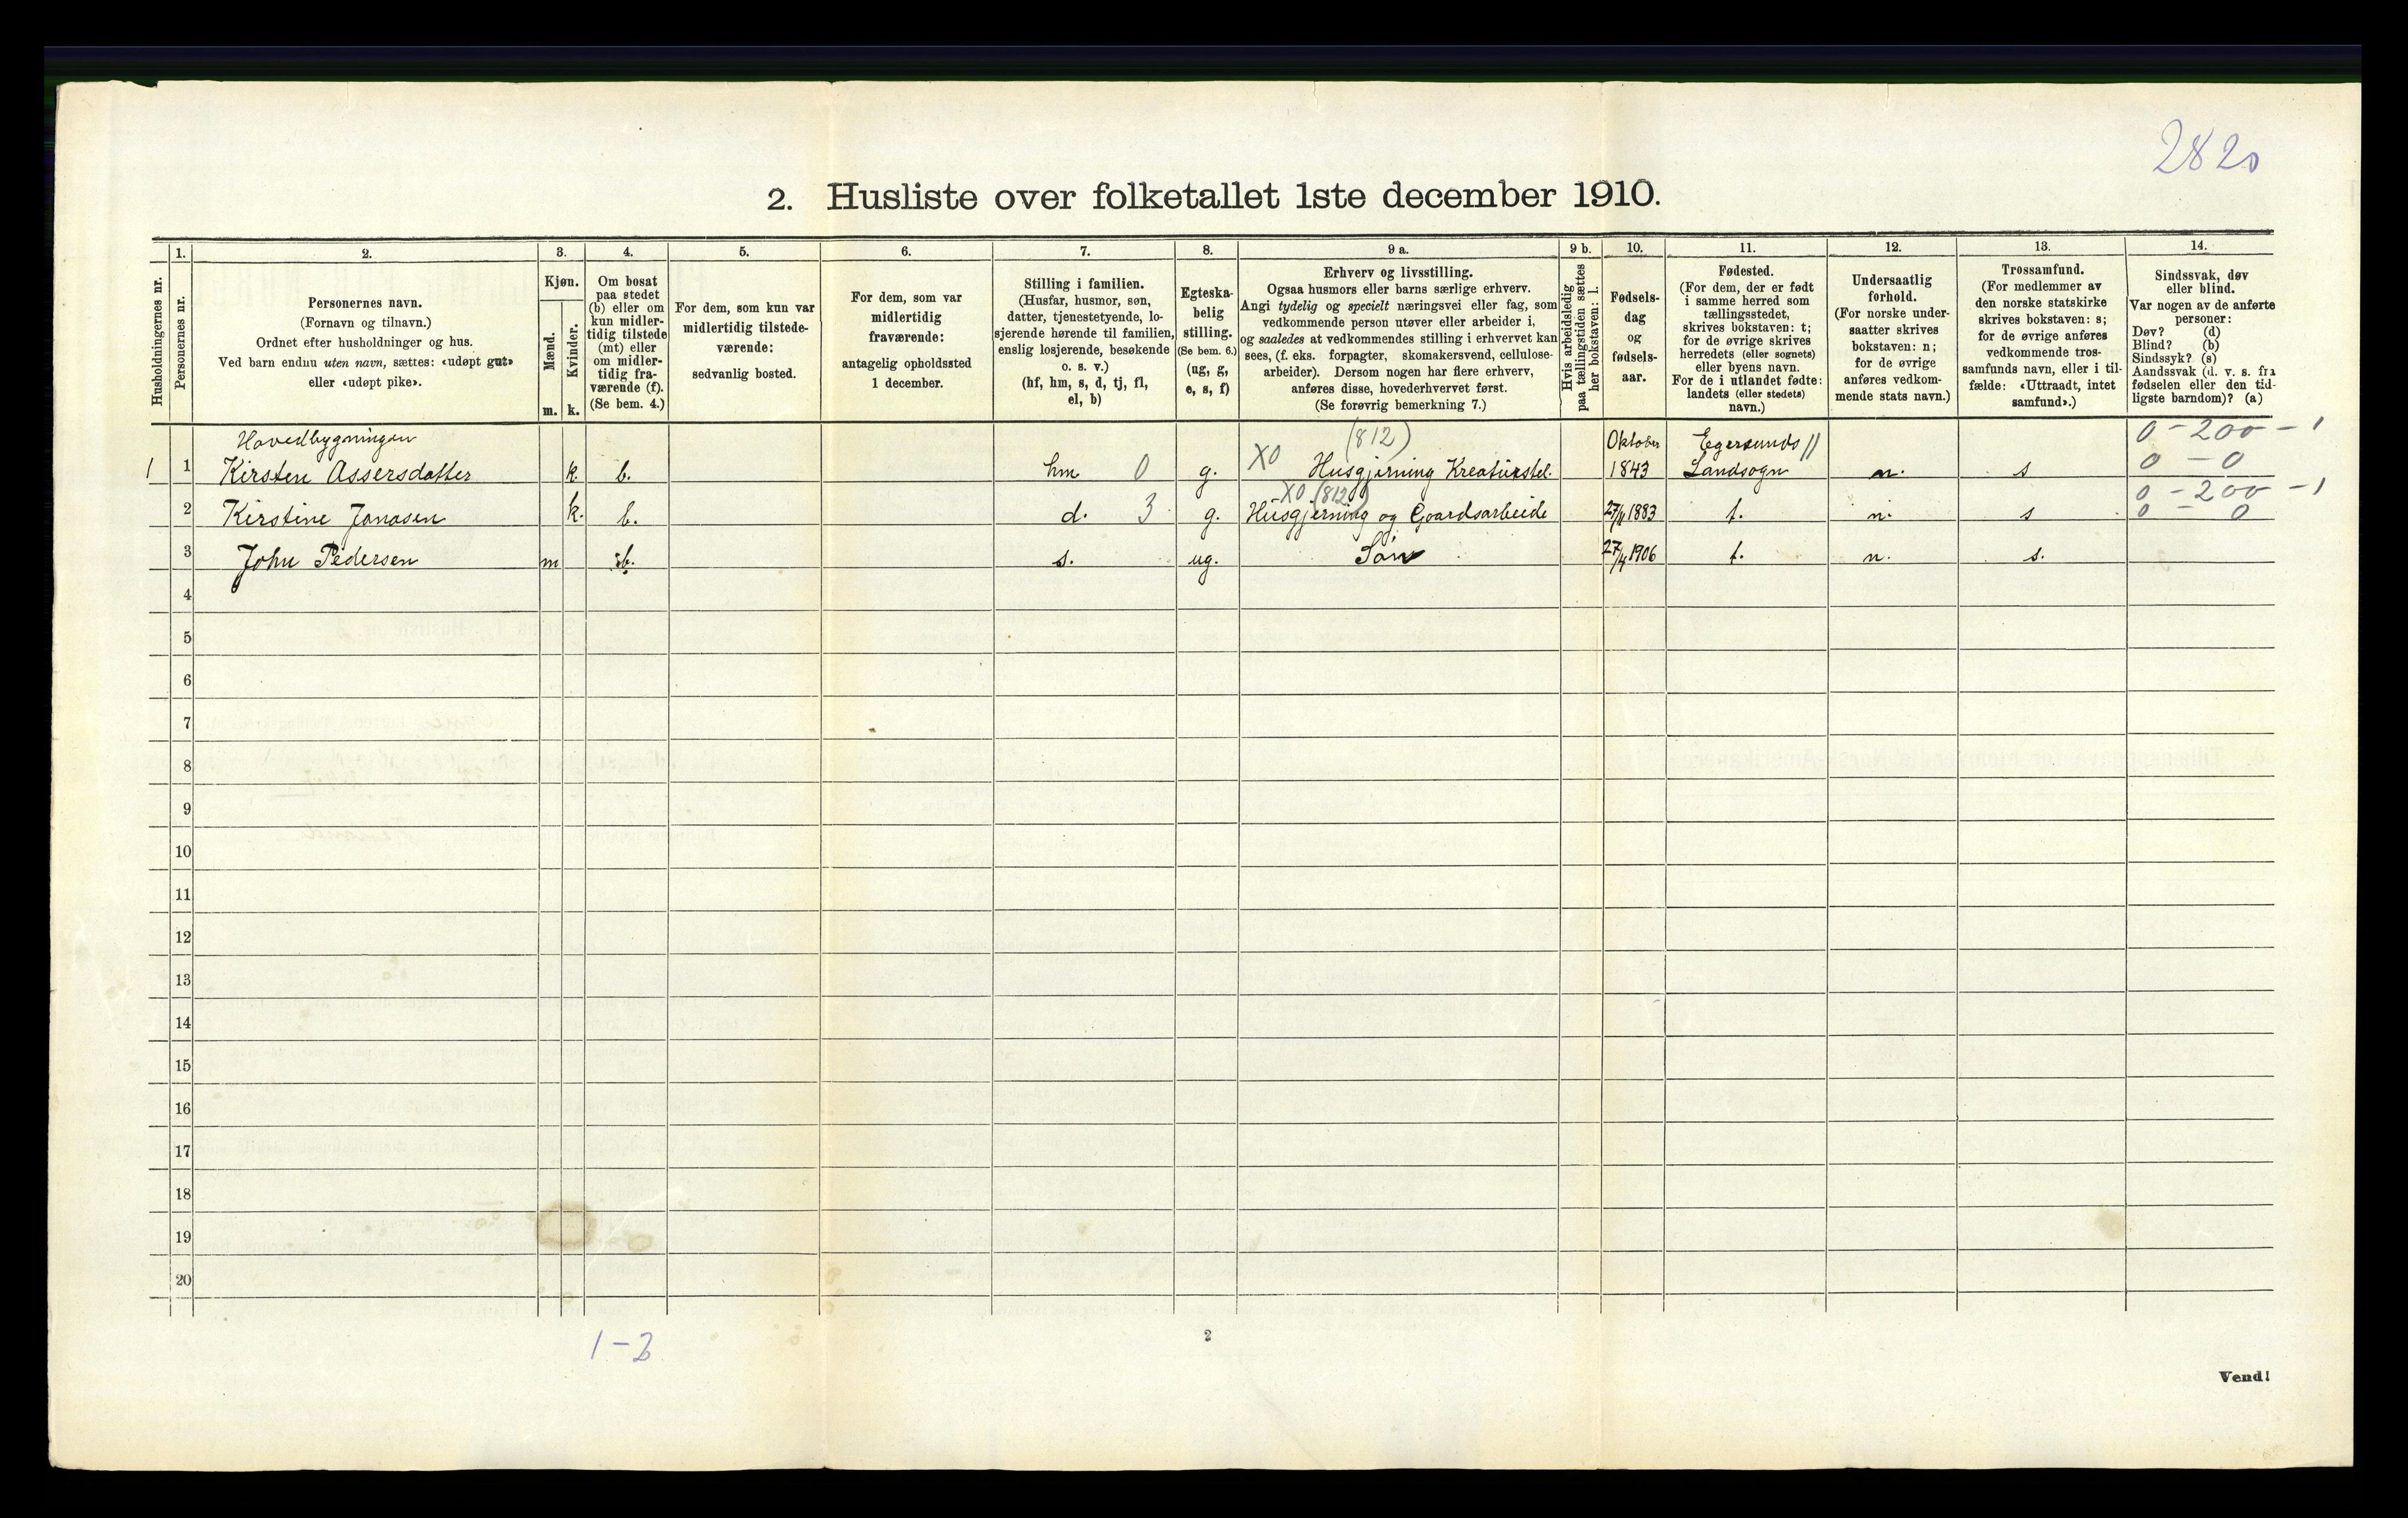 2820
2. Husliste over folketallet 1ste december 1910.
Husholdningernes nr.
1.
Personernes nr.
2.
Personernes navn.
(Fornavn og tilnavn.)
Ordnet efter husholdninger og hus.
Ved barn endnu uten navn, sættes: «udøpt gut»
eller «udøpt pike».
3.
Kjøn.
Mænd.
Kvinder.
m. k.
4.
Om bosat
paa stedet
(b) eller om
kun midler-
tidig tilstede
(mt) eller
om midler-
tidig fra-
værende (f).
(Se bem. 4.)
5.
For dem, som kun var
midlertidig tilstede-
værende:
sedvanlig bosted.
6.
For dem, som var
midlertidig
fraværende:
antagelig opholdssted
1 december.
7.
Stilling i familien.
(Husfar, husmor, søn,
datter, tjenestetyende, lo-
sjerende hørende til familien,
enslig losjerende, besøkende
o. s. v.)
(hf, hm, s, d, tj, fl,
el, b)
8.
Egteska-
belig
stilling.
(Se bem. 6.)
(ug, g,
e, s, f)
9 a.
Erhverv og livsstilling.
Ogsaa husmors eller barns særlige erhverv.
Angi tydelig og specielt næringsvei eller fag, som
vedkommende person utøver eller arbeider i,
og saaledes at vedkommendes stilling i erhvervet kan
sees, (f. eks. forpagter, skomakersvend, cellulose-
arbeider). Dersom nogen har flere erhverv,
anføres disse, hovederhvervet først.
(Se forøvrig bemerkning 7.)
9 b.
Hvis arbeidsledig
paa tællingstiden sættes
her bokstaven: l.
10.
Fødsels-
dag
og
fødsels-
aar.
11.
Fødested.
(For dem, der er født
i samme herred som
tællingsstedet,
skrives bokstaven: t;
for de øvrige skrives
herredets (eller sognets)
eller byens navn.
For de i utlandet fødte:
landets (eller stedets)
navn.)
12.
Undersaatlig
forhold.
(For norske under-
saatter skrives
bokstaven: n;
for de øvrige
anføres vedkom-
mende stats navn.)
13.
Trossamfund.
(For medlemmer av
den norske statskirke
skrives bokstaven: s;
for de øvrige anføres
vedkommende tros-
samfunds navn, eller i til-
fælde: «Uttraadt, intet
samfund».)
14.
Sindssvak, døv
eller blind.
Var nogen av de anførte
personer:
Døv? (d)
Blind? (b)
Sindssyk? (s)
Aandssvak (d. v. s. fra
fødselen eller den tid-
ligste barndom)? (a)
Hovedbygningen (812) Oktober Egersunds // 0-200-1
1 1 Kirsten Assersdatter k. b. hm 0 g. X0 Husgjerning Kreaturstel. 1843 Landsogn n. s 0-0
X0 (812) 0-200-1
2 Kirstine Janasen k. b. d. 3 g. Husgjerning og Gaardsarbeide 1883 t. n. s 0-0
3 John Pedersen m b. s. ug. Søn 27/4 1906 t. n. s.
4
5
6
7
8
9
10
11
12
13
14
15
16
17
18
19
20
1-2
2
Vend!